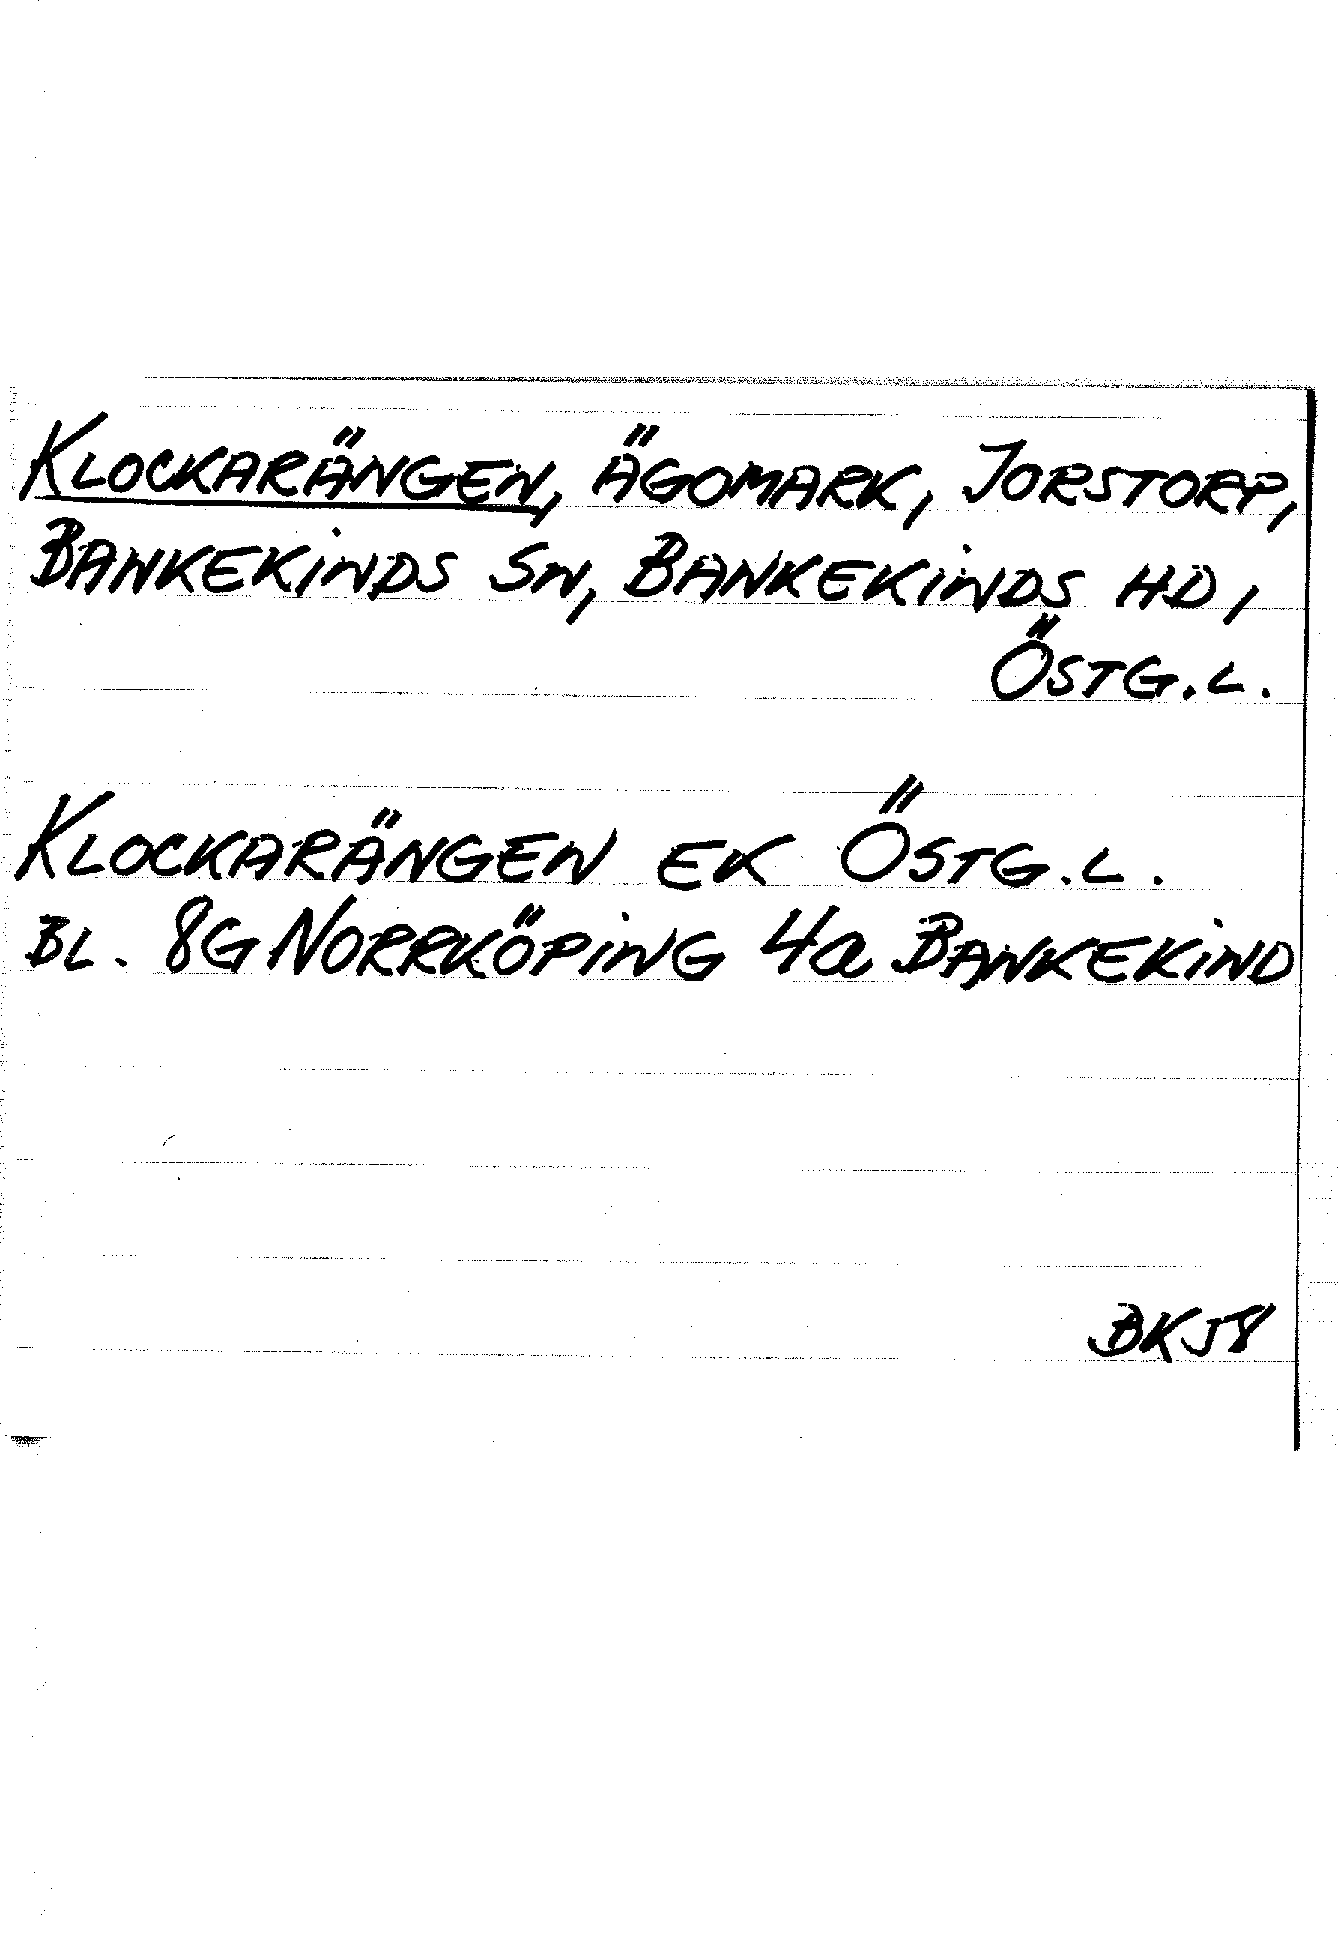 KLOCKARÄNGEN, ÄGOMARK, JORSTORP,
BANKEKINDS SN, BANKEKINDS HD,
ÖSTG.L.
KLOCKARÄNGEN EK ÖSTG.L.
BL. 8G NORRKÖPING 4a BANKEKIND
BKJ8